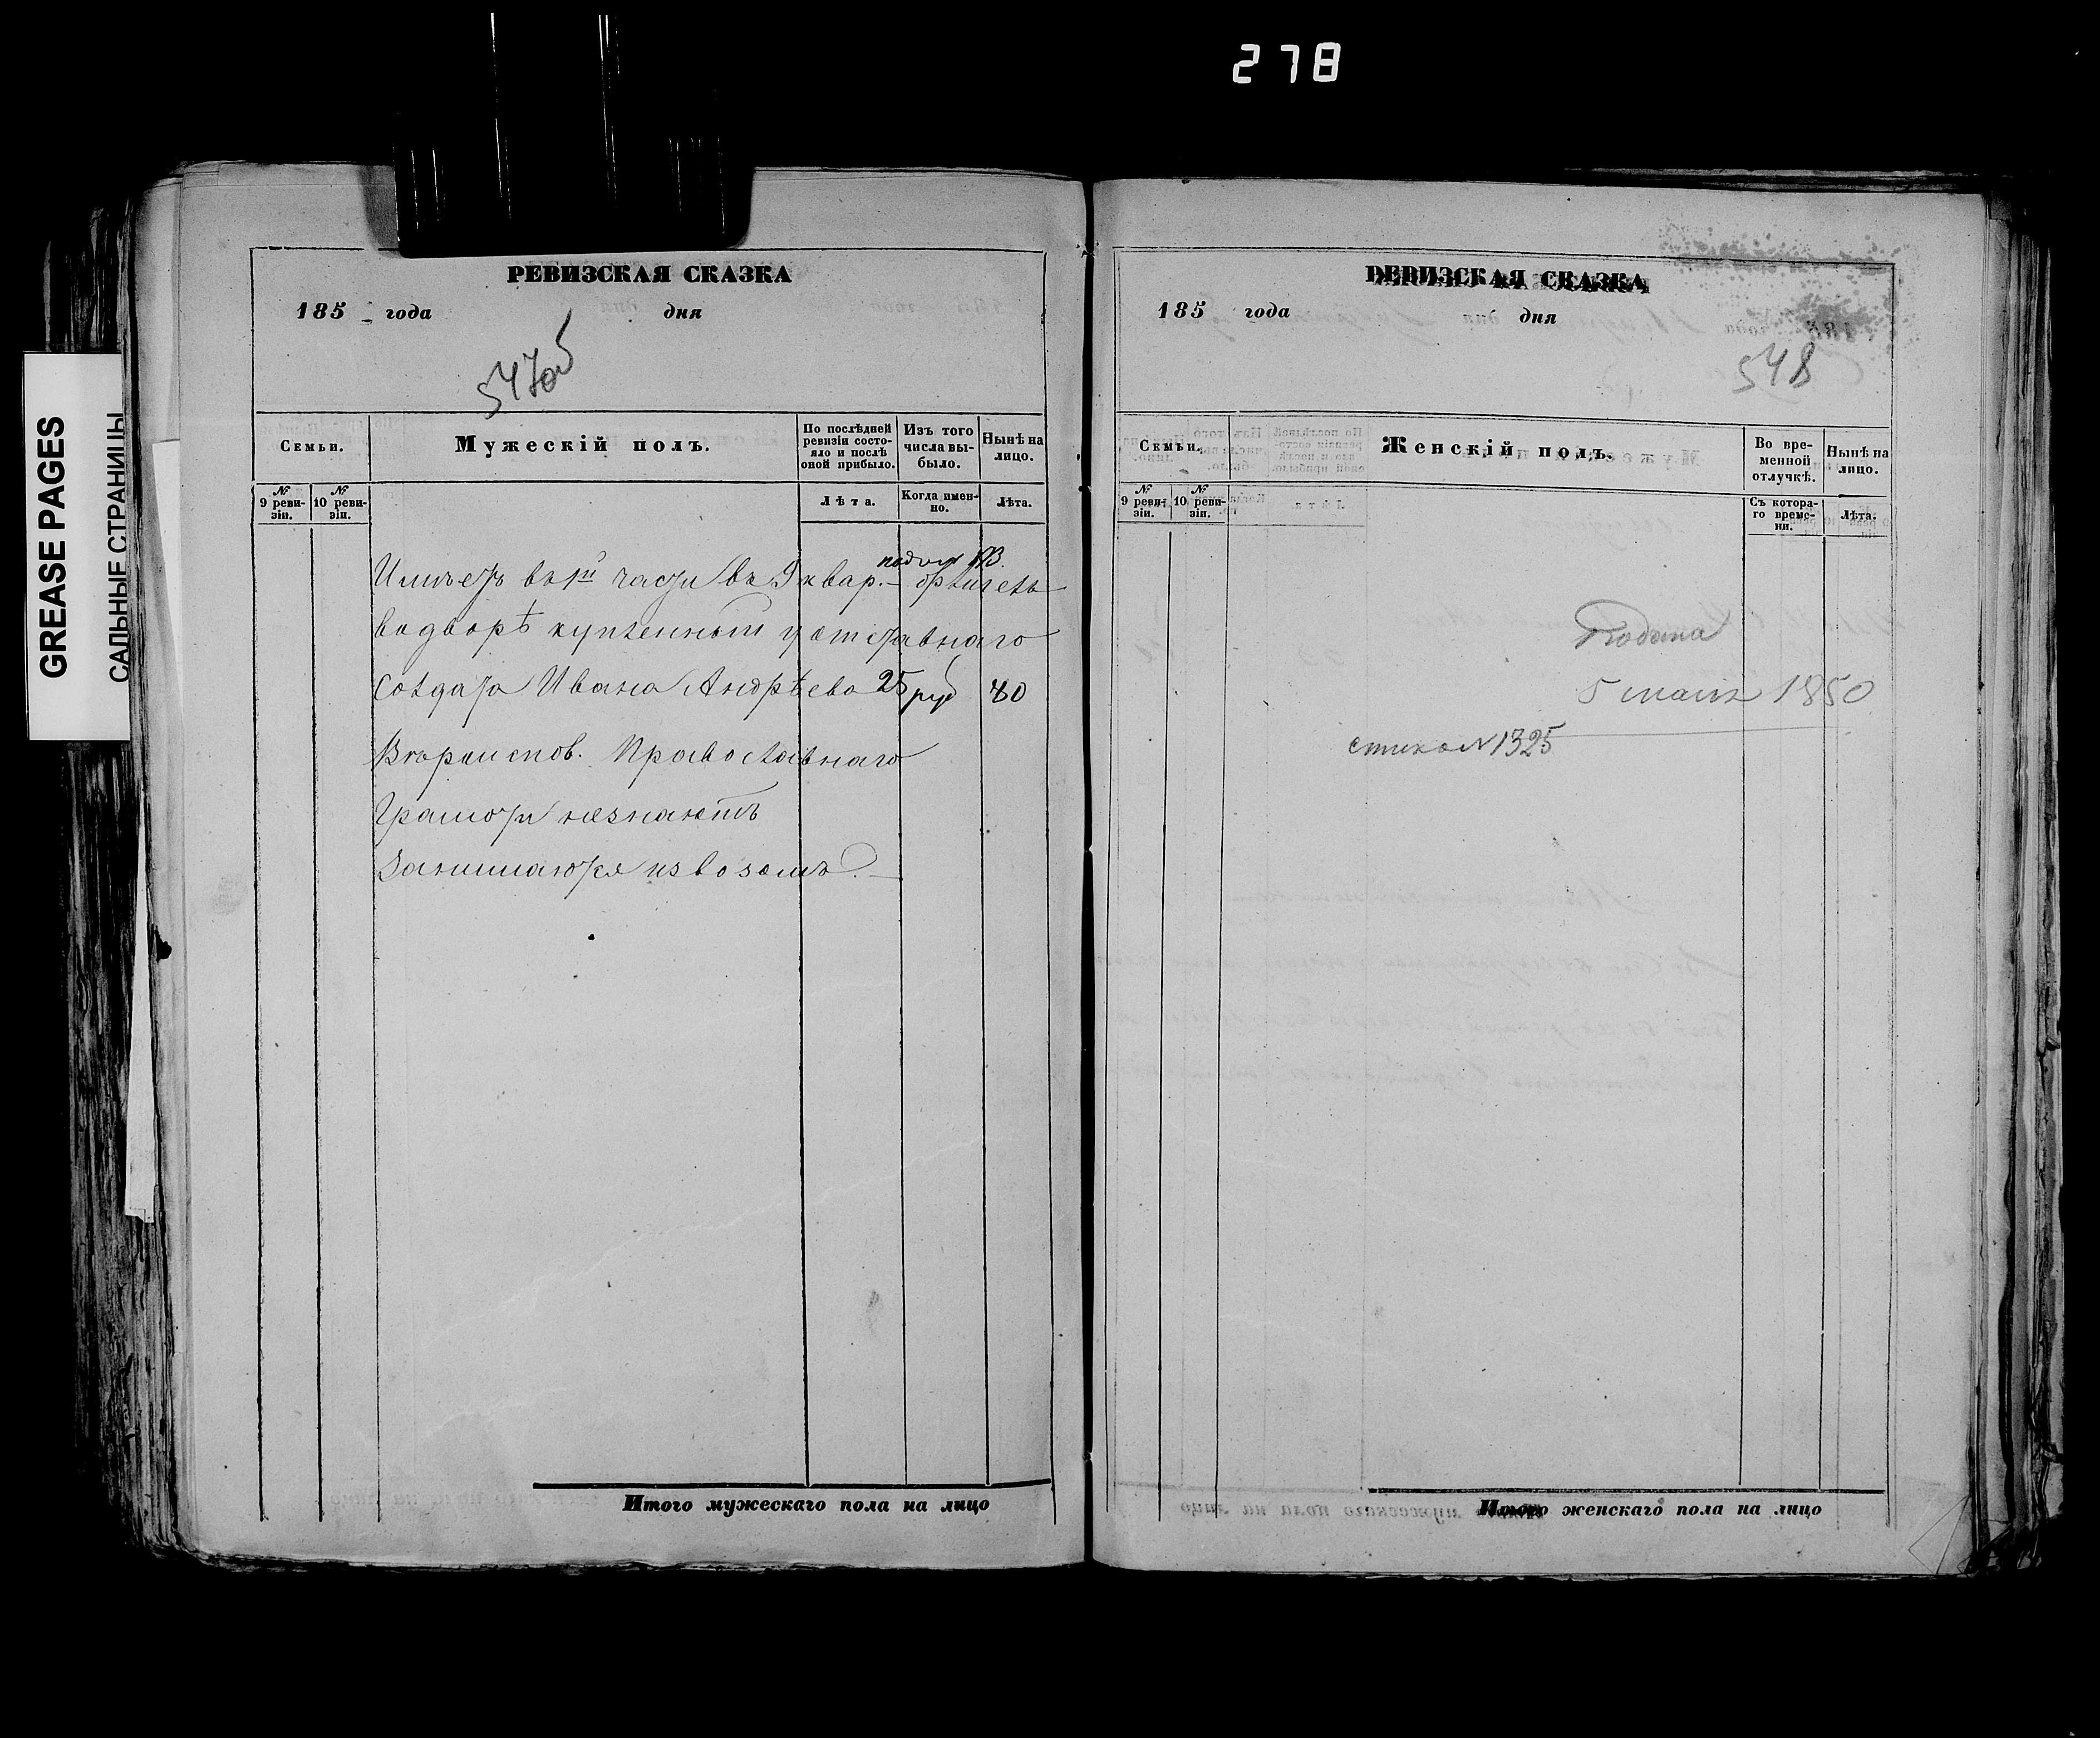 278
GREASE PAGES
САЛЬНЫЕ СТРАНИЦЫ
РЕВИЗСКАЯ СКАЗКА
185 года дня
547об
Семьи.
Мужескій полъ.
По послѣдней ревизіи состо-
яло и послѣ оной прибыло.
Изъ того числа вы-
было.
Нынѣ на лицо.
№ 9 реви-
зіи.
№ 10 реви-
зіи.
Лѣта.
Когда имен-
но.
Лѣта.
Имѣетъ въ 1й части въ 9 квар.
въ дворѣ купленный у отставнаго
Солдата Ивана Андрѣева 25 руб 40
Вѣроиспов. Православнаго
Грамоти незнаютъ
Занимаются извозомъ.
Итого мужескаго пола на лицо
РЕВИЗСКАЯ СКАЗКА
185 года дня
548
Семьи.
Женскій полъ.
Во вре-
менной отлучкѣ.
Нынѣ на лицо.
№ 9 реви-
зіи.
№ 10 реви-
зіи.
Съ котора-
го време-
ни.
Лѣта.
Подана
5 1850
№ 1325
Итого женскаго пола на лицо